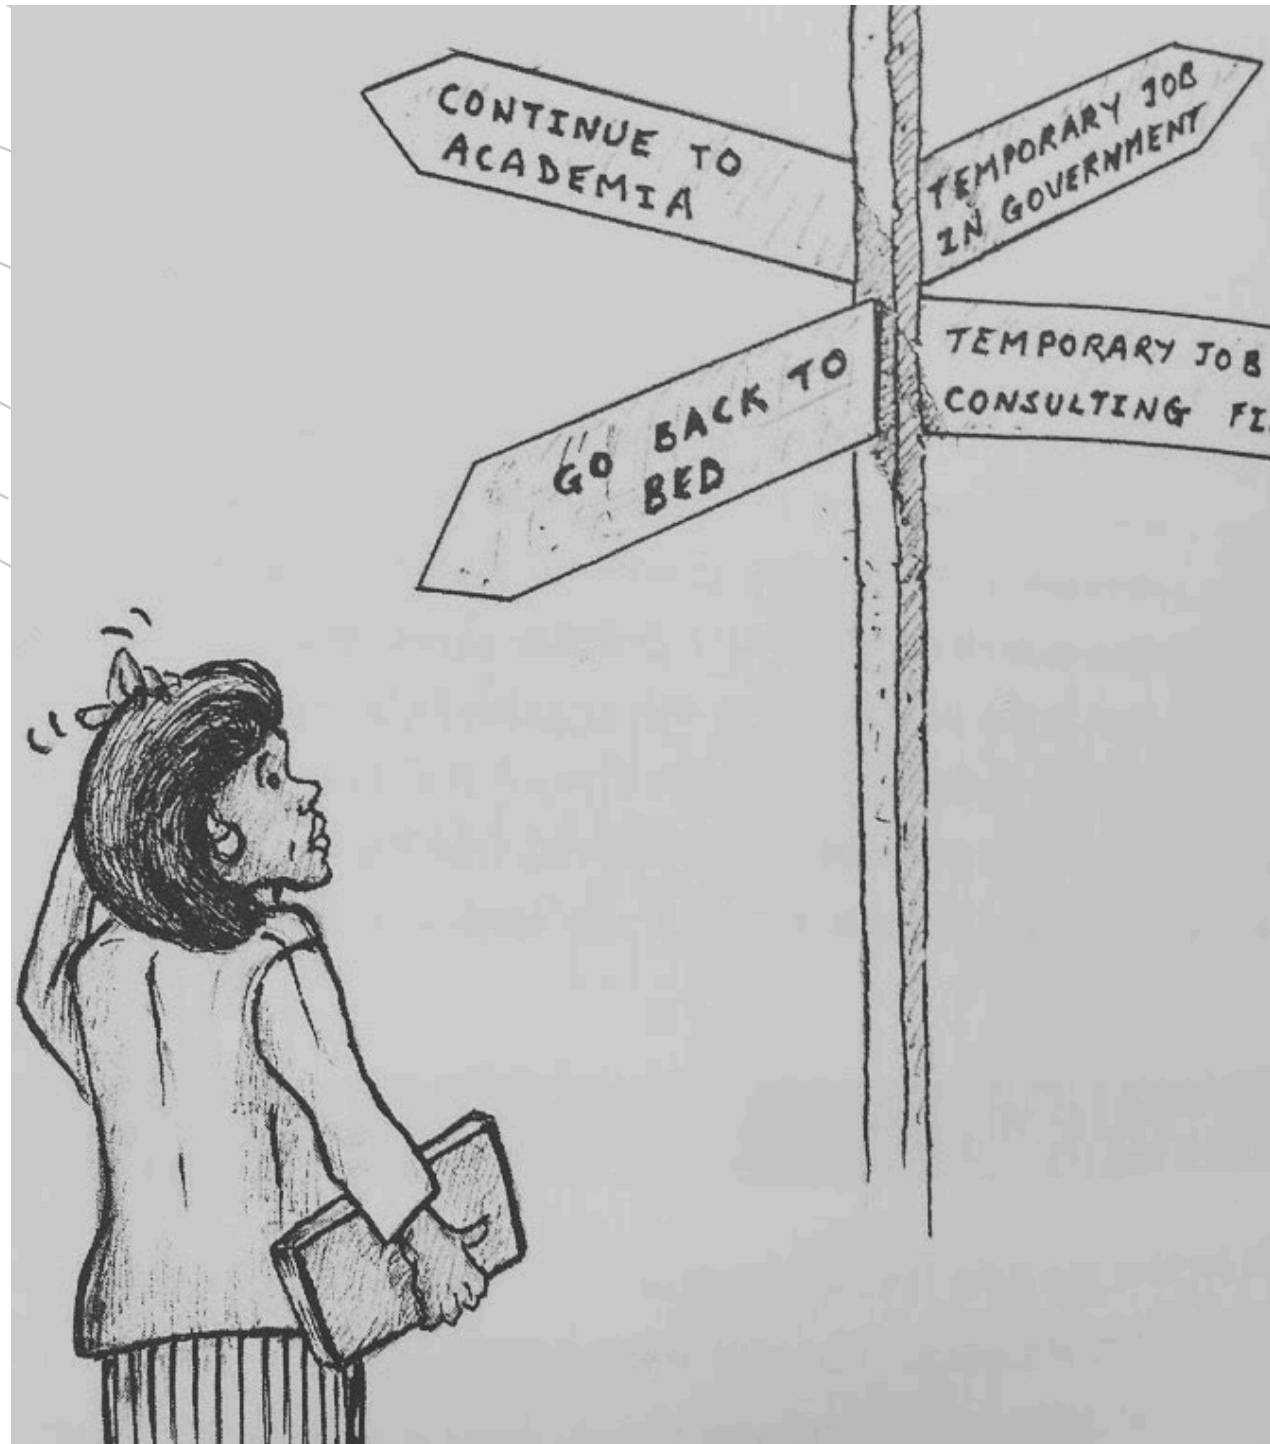 CONTINUE TO
ACADEMIA
TEMPORARY JOB
IN GOVERNMENT
GO BACK TO
BED
TEMPORARY JOB
CONSULTING